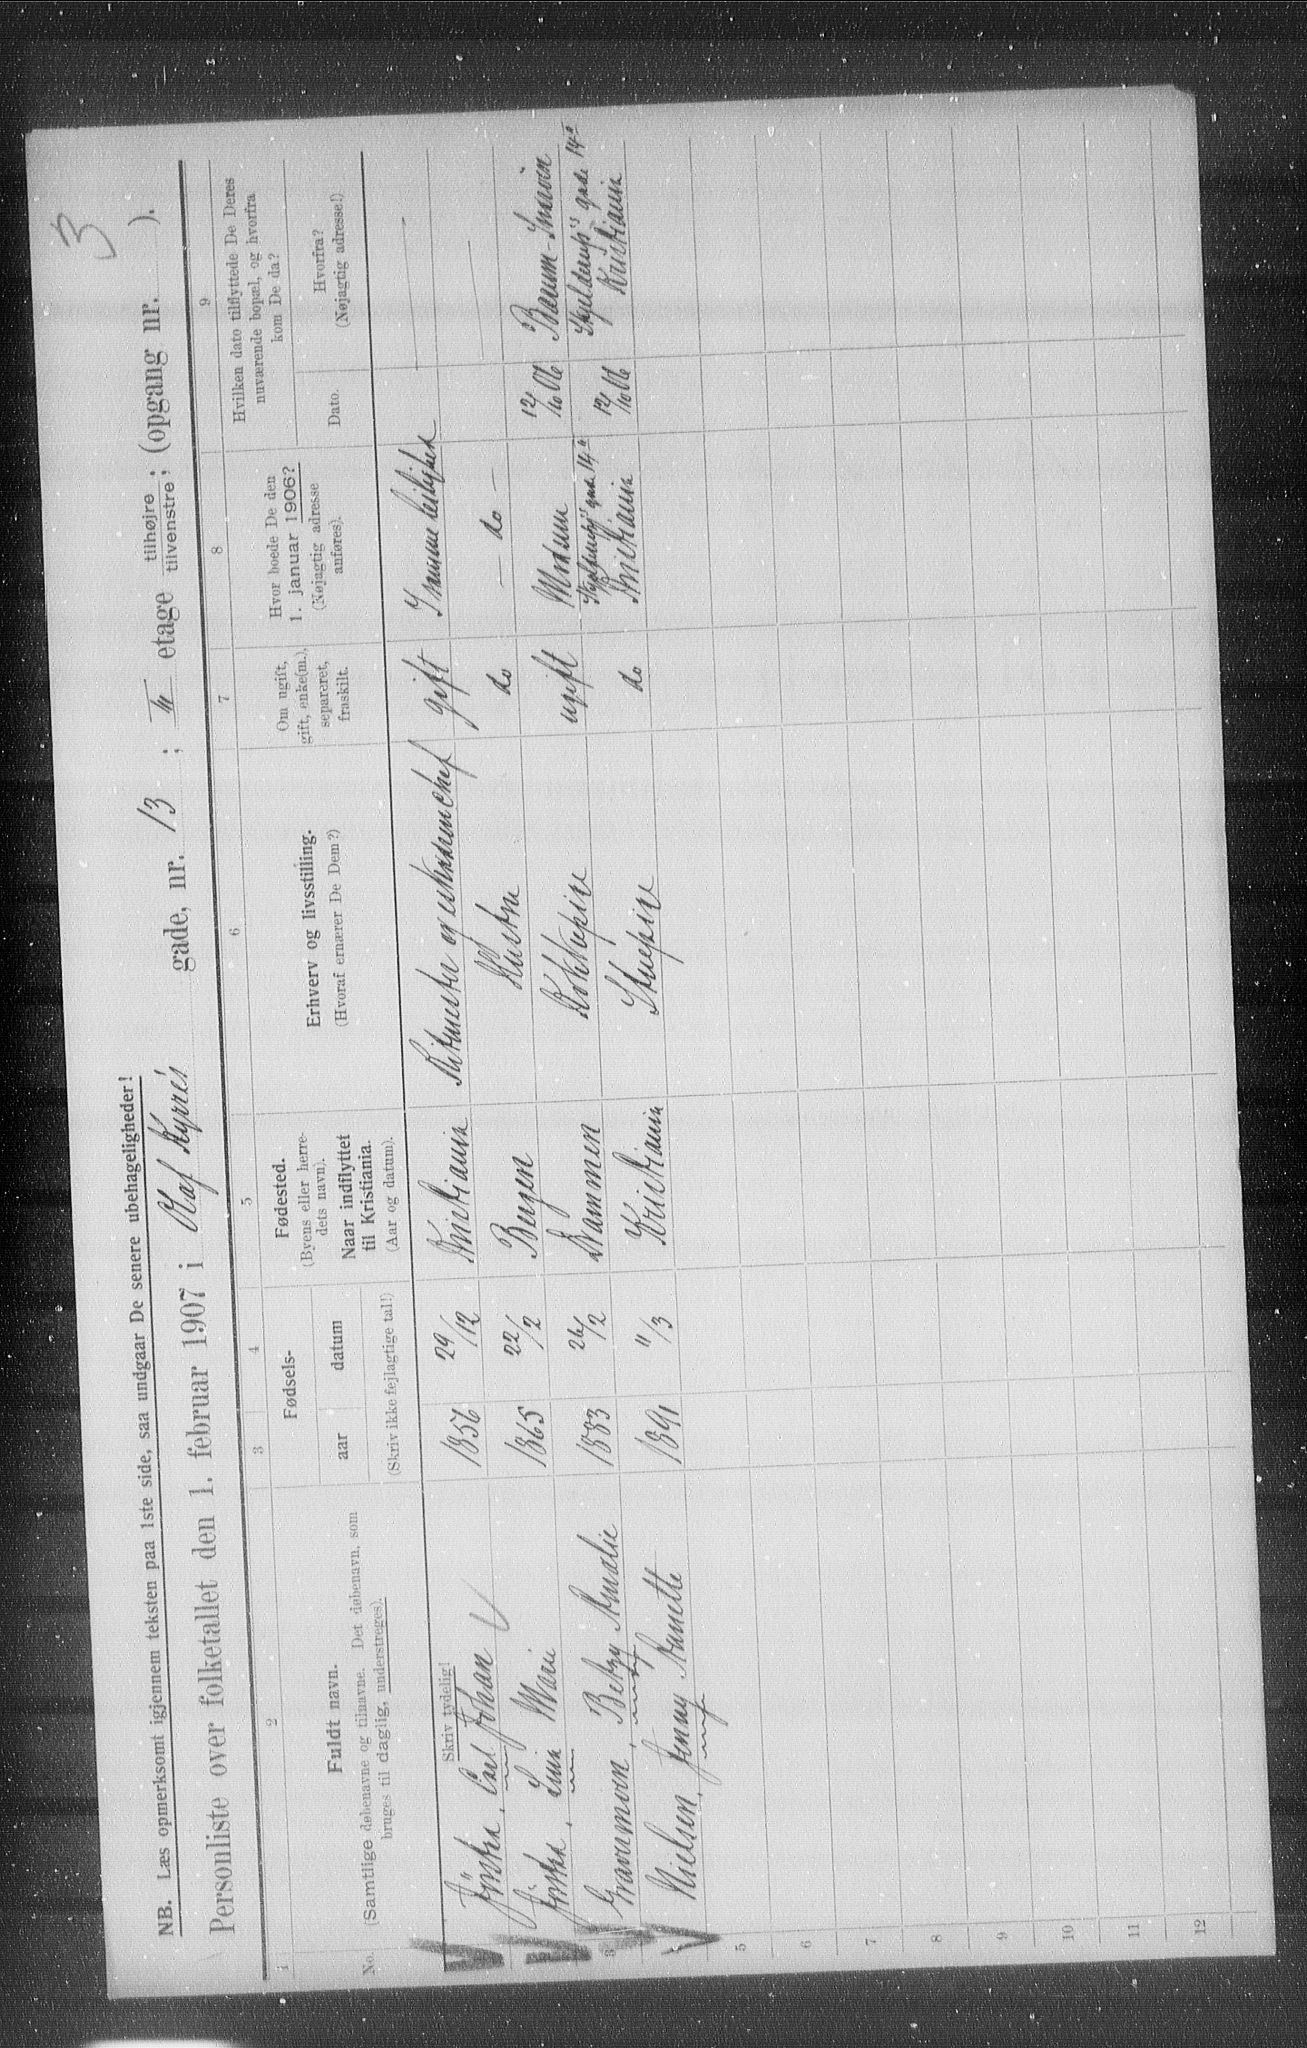 3
NB. Læs opmerksomt igjennem teksten paa 1ste side, saa undgaar De senere ubehageligheder!
Personliste over folketallet den 1. februar 1907 i Olaf Kyrres gade, nr. 13 ; II etage tilhøjre / tilvenstre ; (opgang nr. ).
1 2 3 4 5 6 7 8 9
No. Fuldt navn. (Samtlige døbenavne og tilnavne. Det døbenavn, som bruges til daglig, understreges).
Fødsels- aar datum (Skriv ikke fejlagtige tal!)
Fødested. (Byens eller herredets navn). Naar indflyttet til Kristiania. (Aar og datum).
Erhverv og livsstilling. (Hvoraf ernærer De Dem?)
Om ugift, gift, enke(m.), separeret, fraskilt.
Hvor boede De den 1. januar 1906? (Nøjagtig adresse anføres).
Hvilken dato tilflyttede De Deres nuværende bopæl, og hvorfra kom De da?
Dato. Hvorfra? (Nøjagtig adresse!)
Skriv tydelig!
Carl Johan 1856 29/12 Kristiania gift
Marie 1865 22/2 Bergen Hustru do — do —
3 Betzy Amalie 1883 26/2 Drammen Kokkepige ugift Modum 12/10 06 Bærum-
Nielsen, Jenny Anette 1891 11/3 Kristiania Stuepige do gade 14a Kristiania 12/10 06 gade 14a Kristiania
5
6
7
8
9
10
11
12